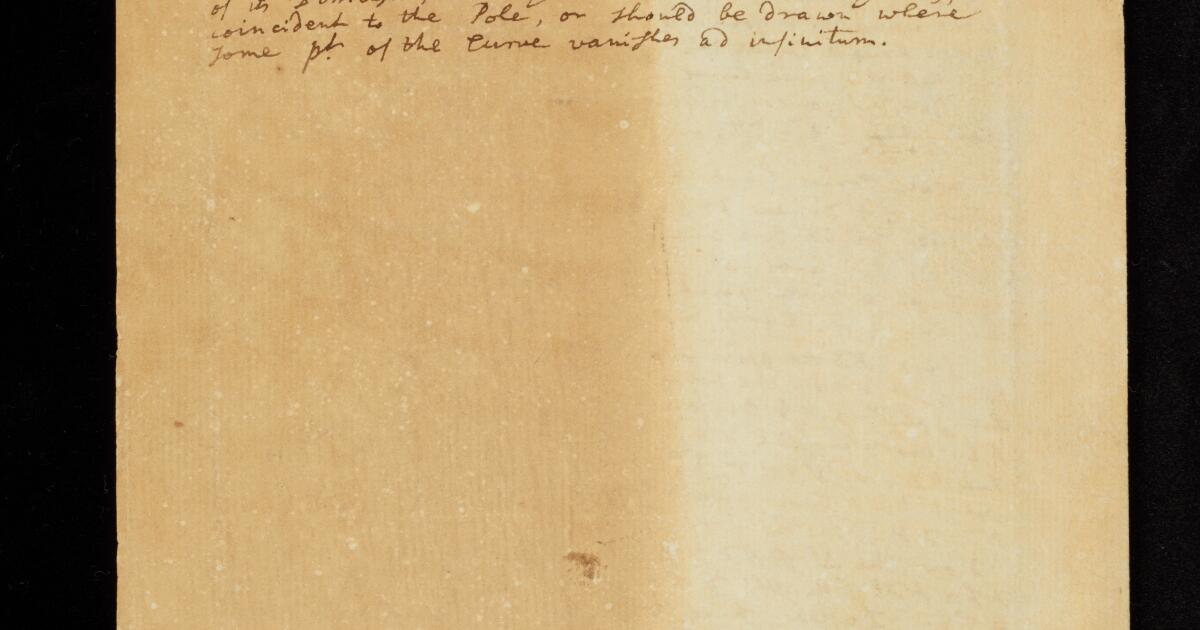 of its
coincident to the Pole, or should be drawn where
some pt of the Curve vanishes ad infinitum.